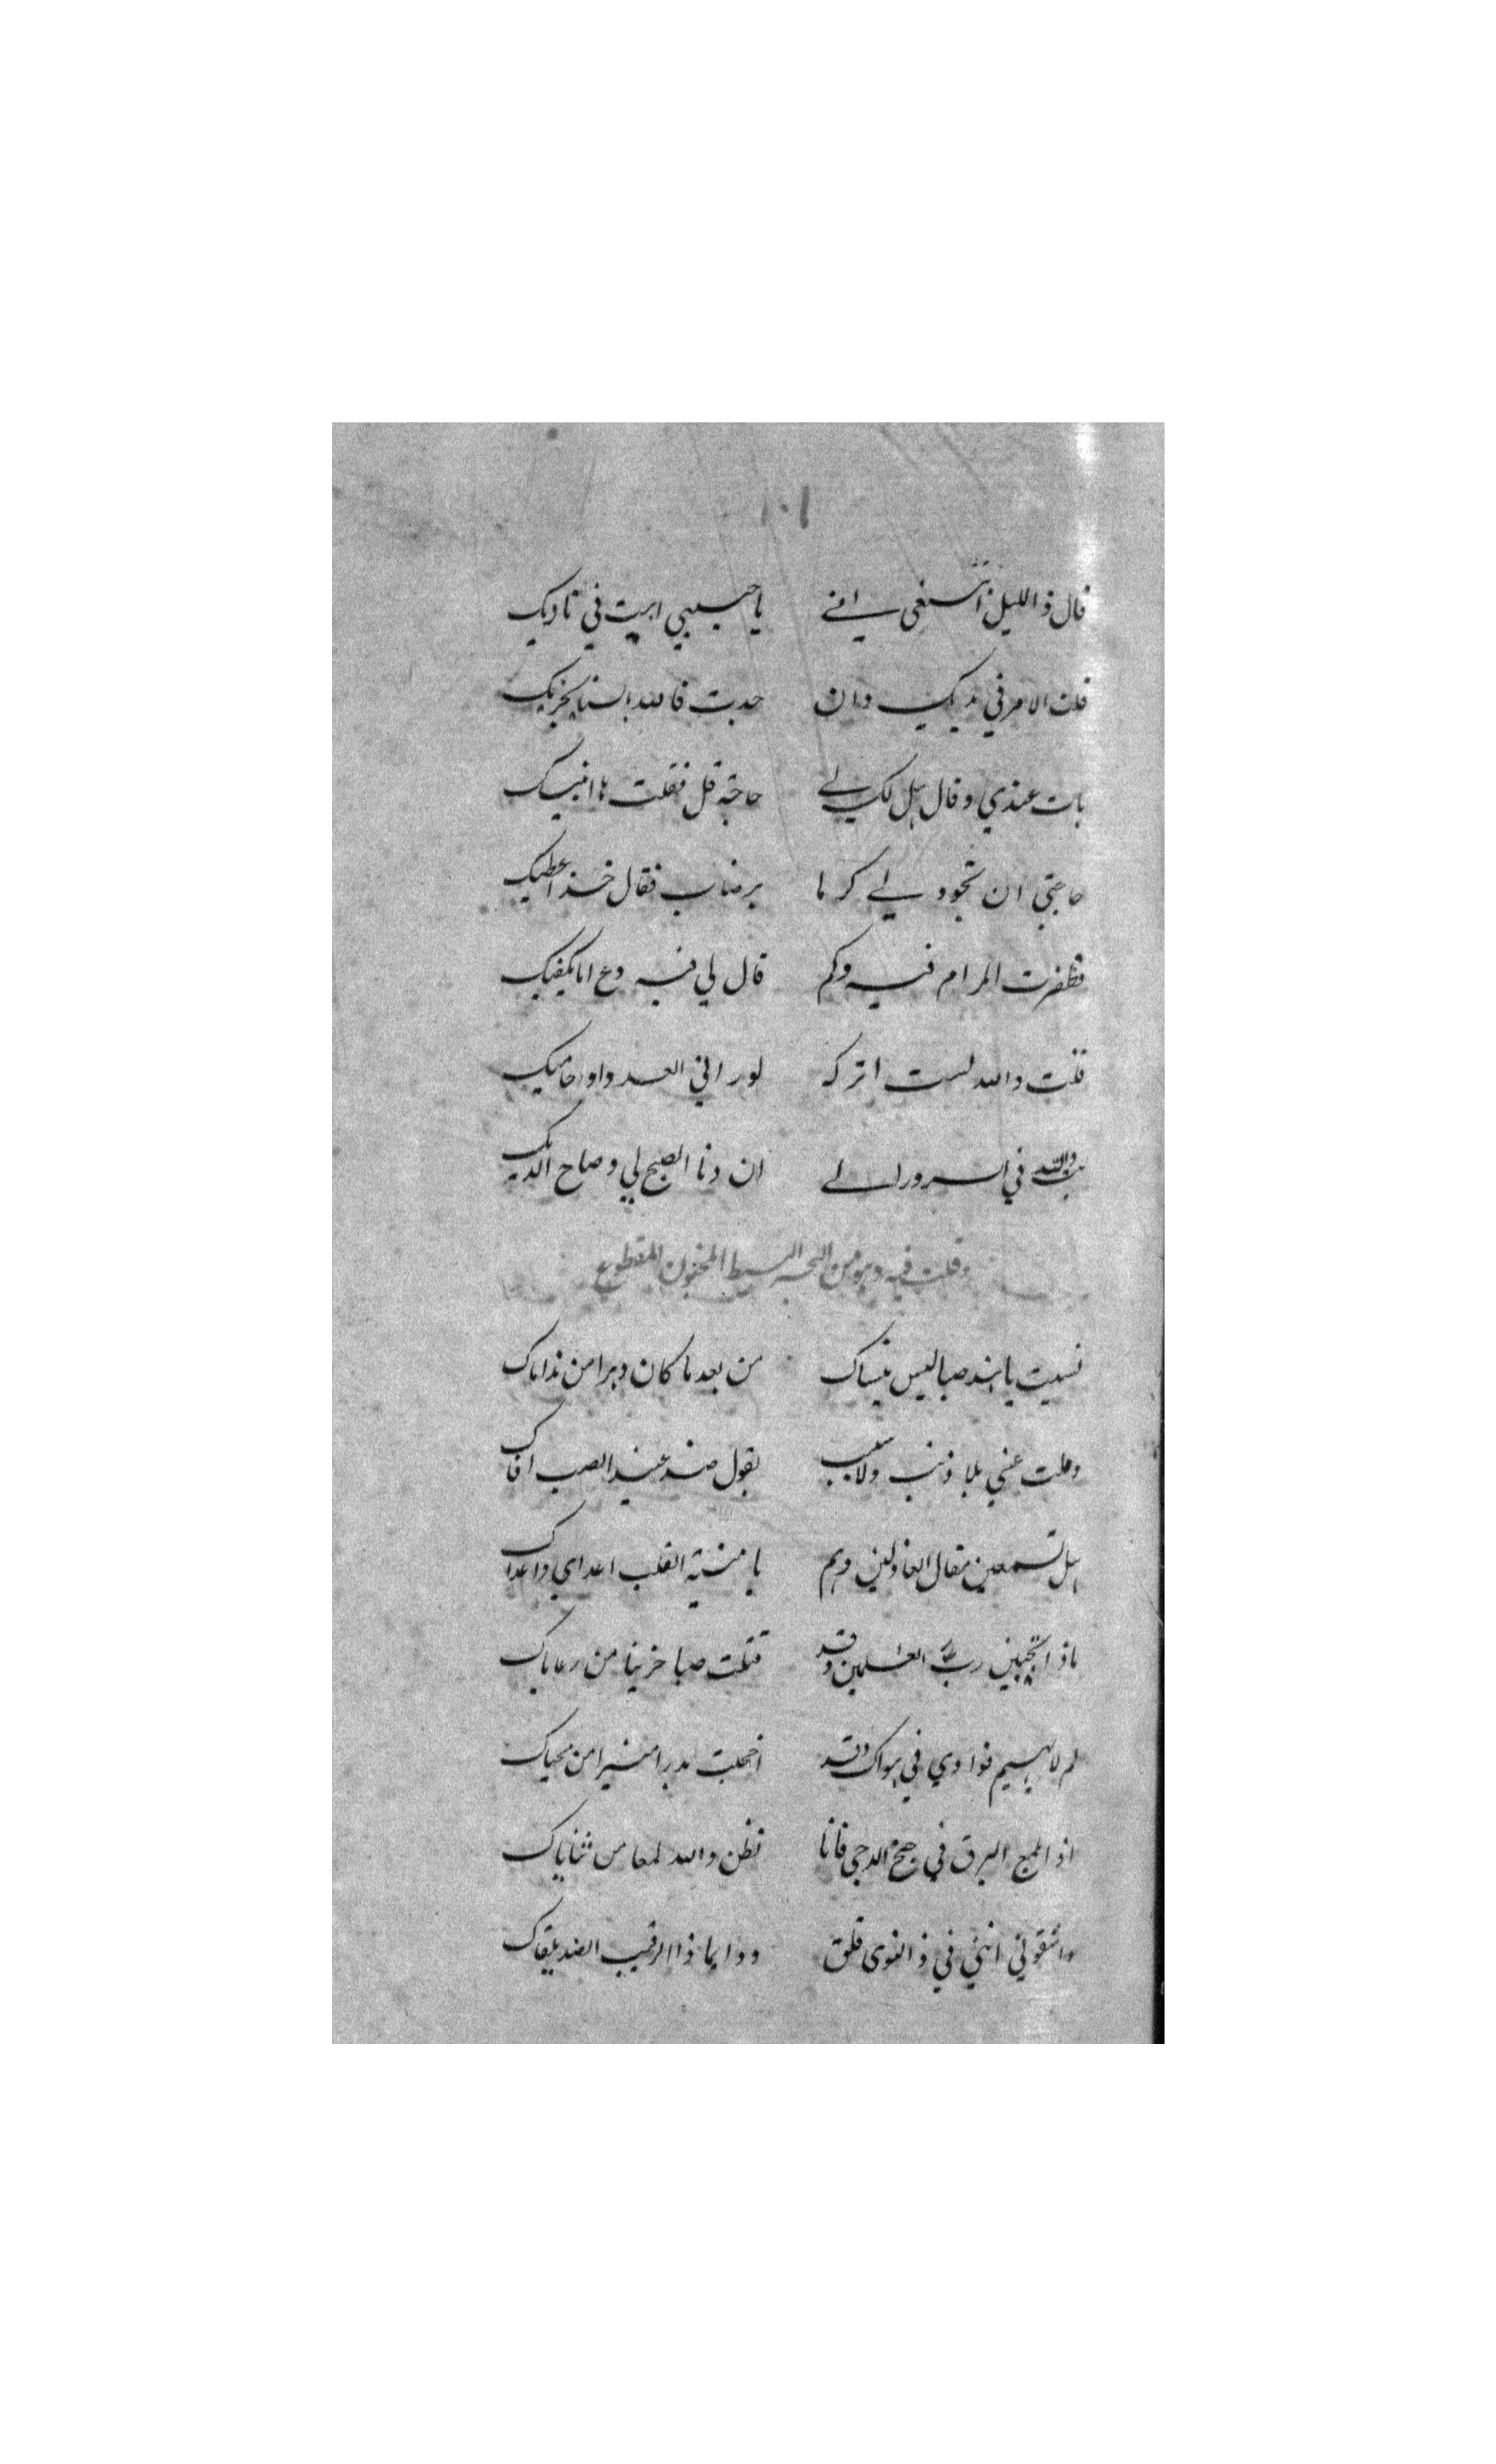 ١٠١
قال ذ الليل اتسغى اني يا حبيبي ابيت في ناديك
قلت الامر في يديك وان جدبت فالله بالسنا يجزيك
بات عندي وقال هل لك لي حاجة قل فقلت ها انبيك
حاجتي ان تجود لي كرما برضاب فقال خذ اعطيك
فظفرت المرام فيه وكم قال لي فيه دع امايكفيك
قلت والله لست اتركه لوراني العدو اوحاميك
بت والله في السرور الى ان دنا الصبح لي وصاح الديك
وقلت فيه وهو من البحر البسيط المخبون المقطوع
نسيت يا هند صبا ليس ينساك من بعد ما كان دهرا من نداماك
وملت عني بلا ذنب ولا سبب بقول ضد عنيد الصب افاك
هل تسمعين مقال العاذلين وهم يا منية القلب اعداي واعداك
ماذا تجيبين رب العلمين وقد قتلت صبا حزينا من رعاياك
لم لا يهيم فوادي في هواك وقد اخجلت بدرا منيرا من محياك
اذا لمع البرق في جنح الدجى فانا نظن والله لمعا من ثناياك
واشقوتي انني في ذ النوى قلق ودايما ذا الرقيب الضد يلقاك